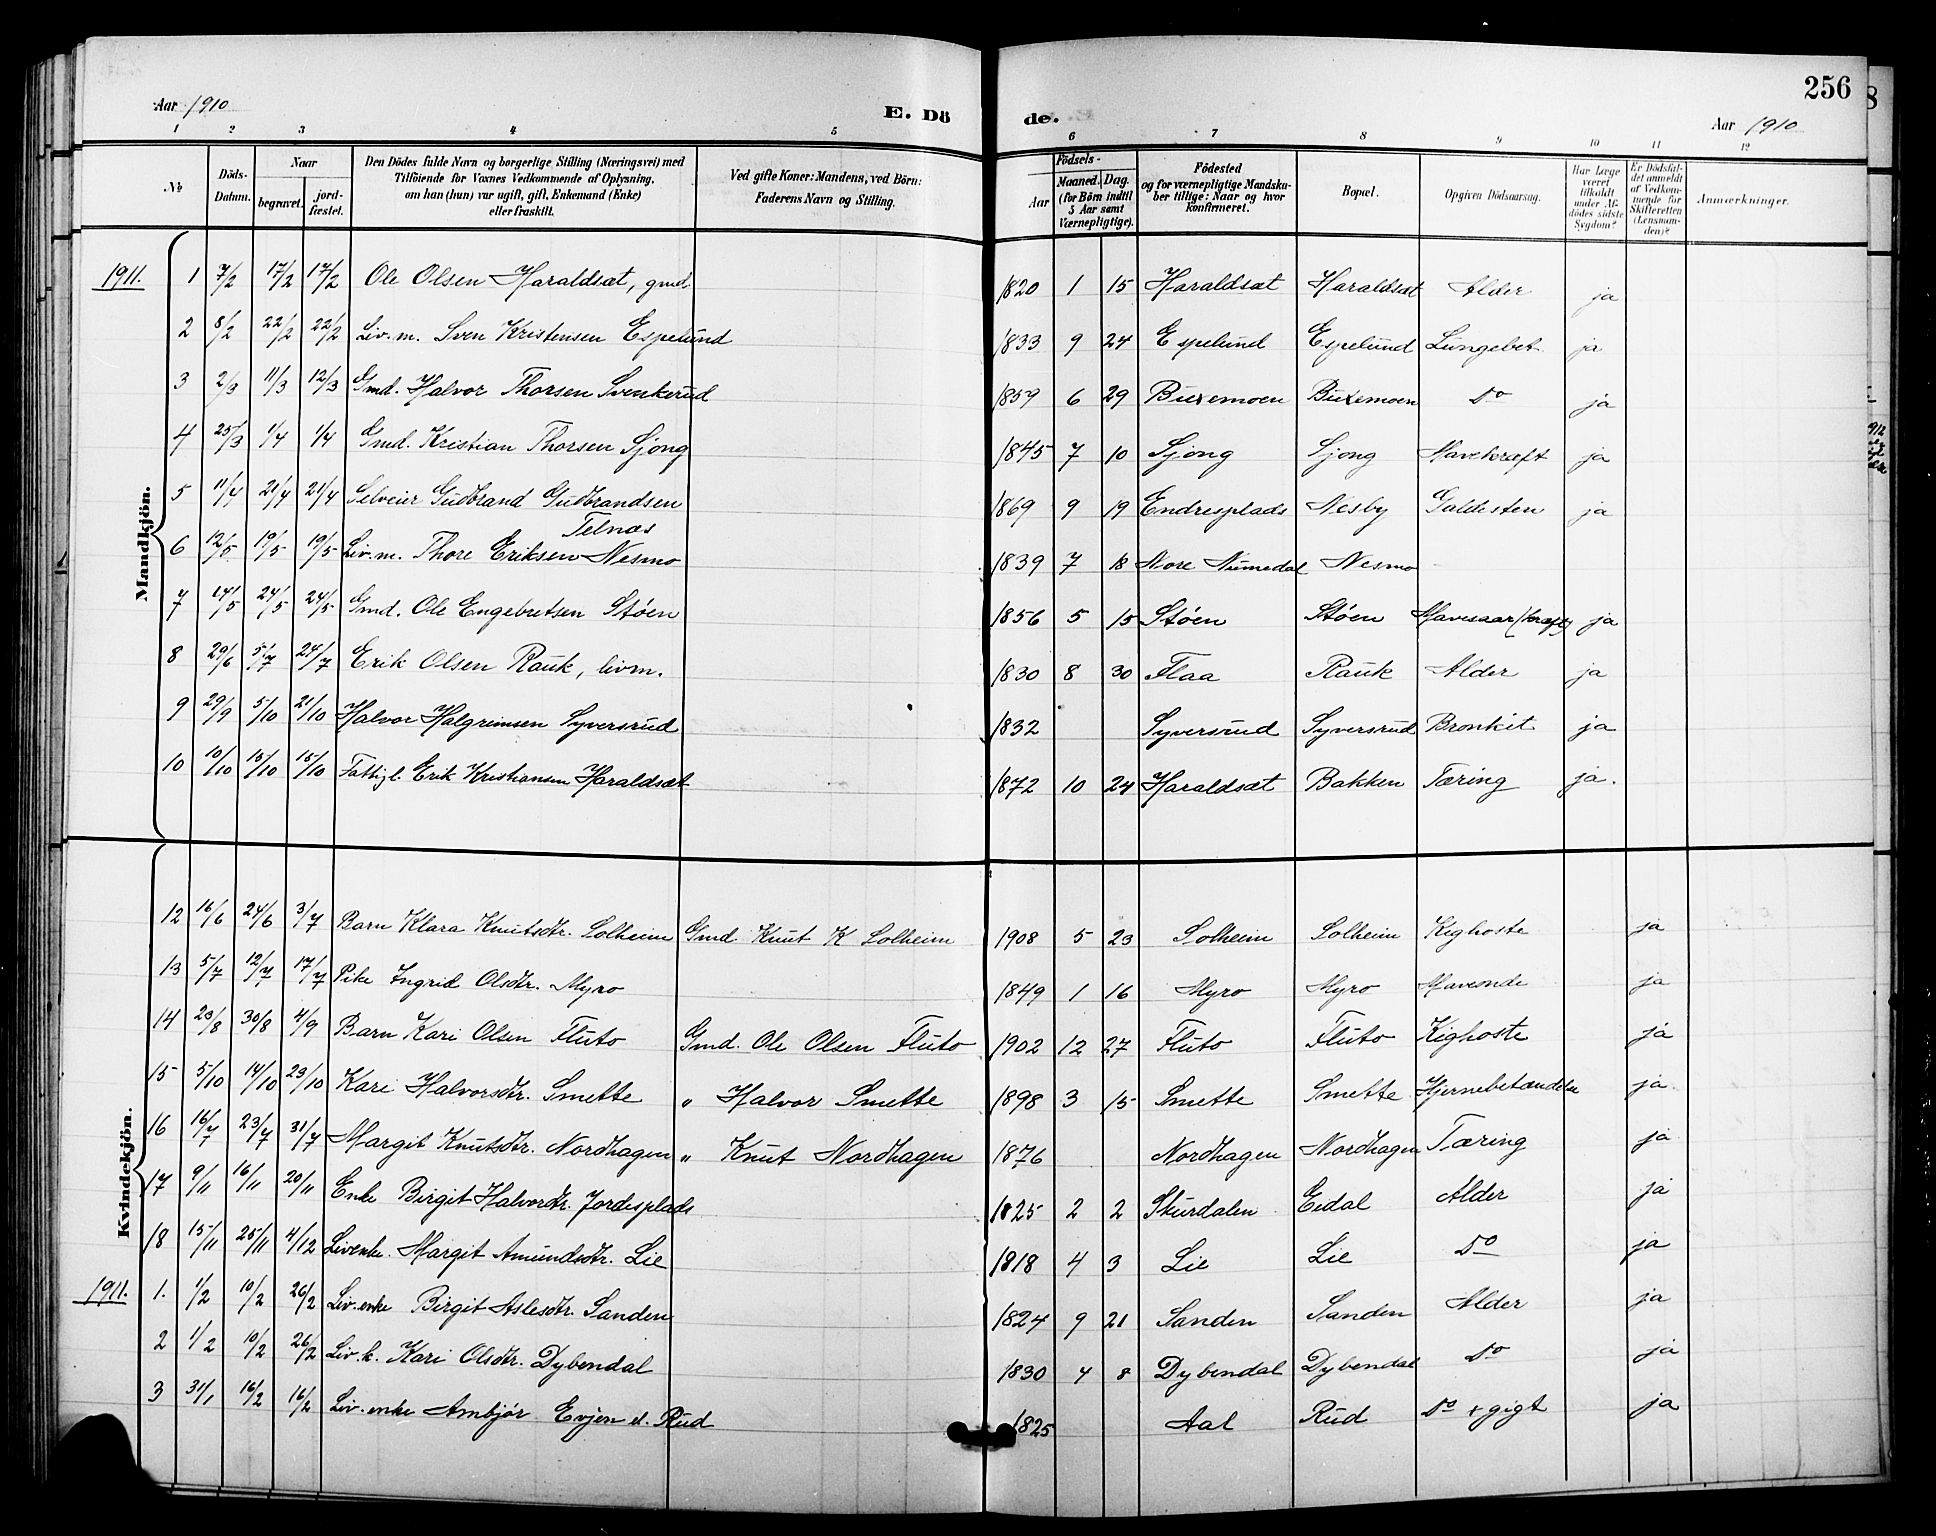 256
Aar 1910
E. Dö de.
Aar 1910
1 2 3 4 5 6 7 8 9 10 11 12
No
Döds-Datum.
Naar
begravet.
jord-fæstet.
Den Dödes fulde Navn og borgerlige Stilling (Næringsvei) med
Tilföiende for Voxnes Vedkommende af Oplysning,
om han (hun) var ugift, gift, Enkemand (Enke)
eller fraskilt.
Ved gifte Koner: Mandens, ved Börn:
Faderens Navn og Stilling.
Födsels-
Aar
Maaned. Dag.
(for Börn indtil
5 Aar samt
Værnepligtige).
Födested
og for værnepligtige Mandska-
ber tillige: Naar og hvor
konfirmeret.
Bopæl.
Opgiven Dödsaarsag.
Har Læge
været
tilkaldt
under Af-
dödes sidste
Sygdom?
Er Dödsfal-
det anmeldt
af Vedkom-
mende for
Skifteretten
(Lensman-
den)?
Anmærkninger.
Mandkjön.
1911. 1 7/2 17/2 17/2 Ole Olsen Haraldsæt, gmd. 1820 1 15 Haraldsæt Haraldsæt Alder ja
2 8/2 22/2 22/2 Liv.m. Sven Kristensen Espelund 1833 9 24 Espelund Espelund Lungebet. ja
3 2/3 11/3 12/3 Gmd. Halvor Thorsen Svenkerud 1859 6 29 Buxemoen Buxemoen Do ja
4 25/3 1/4 1/4 Gmd. Kristian Thorsen Sjong 1845 7 10 Sjong Sjong Mavekræft ja
5 11/4 21/4 21/4 Selveier Gudbrand Gudbrandsen Telnæs 1869 9 19 Endresplads Nesby Galdesten ja
6 12/5 19/5 19/5 Liv.m. Thore Eriksen Nesmo 1839 7 18 Nore Numedal Nesmo
7 14/5 24/5 24/5 Gmd. Ole Engebretsen Støen 1856 5 15 Støen Støen Mavesaar (kræft) ja
8 29/6 5/7 24/7 Erik Olsen Rauk, livm. 1830 8 30 Flaa Rauk Alder ja
9 29/9 5/10 21/10 Halvor Halgrimsen Syversrud 1832 Syversrud Syversrud Bronkit ja
10 10/10 15/10 15/10 Fattigl. Erik Kristiansen Haraldsæt 1872 10 24 Haraldsæt Bakken Tæring ja.
Kvindekjön.
12 16/6 24/6 3/7 Barn Klara Knutsdtr. Solheim Gmd. Knut K Solheim 1908 5 23 Solheim Solheim Kighoste ja
13 5/7 12/7 17/7 Pike Ingrid Olsdtr. Myro 1849 1 16 Myro Myro Maveonde ja
14 23/8 30/8 4/9 Barn Kari Olsen Fluto Gmd. Ole Olsen Fluto 1902 12 27 Fluto Fluto Kighoste ja
15 5/10 14/10 23/10 Kari Halvorsdtr. Smette " Halvor Smette 1898 3 15 Smette Smette Hjernebetændelse ja
16 16/7 23/7 31/7 Margit Knutsdtr. Nordhagen " Knut Nordhagen 1876 Nordhagen Nordhagen Tæring ja
17 9/11 16/11 20/11 Enke Birgit Halvordtr. Jordesplads 1825 2 2 Skurdalen Eidal Alder ja
18 15/11 25/11 4/12 Livenke. Margit Amundsdtr. Lie 1818 4 3 Lie Lie Do ja
1911. 1. 1/2 10/2 26/2 Liv.enke Birgit Aslesdtr. Sanden 1824 9 21 Sanden Sanden Alder ja
2 1/2 10/2 26/2 Liv.k. Kari Olsdtr. Dybendal 1830 4 8 Dybendal Dybendal Do ja
3 31/1 16/2 16/2 Liv.enke Ambjør Evjen e. Rud 1825 Aal Rud Do + gigt ja